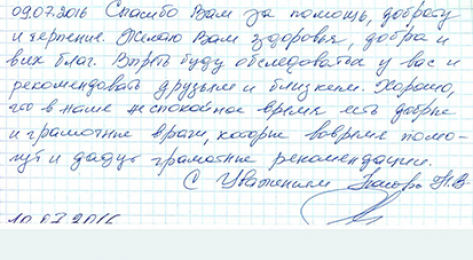 09.07.2016 Спасибо Вам за помощь, доброту
и терпение. Желаю Вам здоровья, добра и
всех благ. Впредь буду обследоваться у вас и
рекомендовать друзьям и близким. Хорошо,
что в наше неспокойное время есть добрые
и грамотные врачи, которые вовремя помо-
гут и дадут грамотные рекомендации.
С Уважением Н.В
10.07.2016